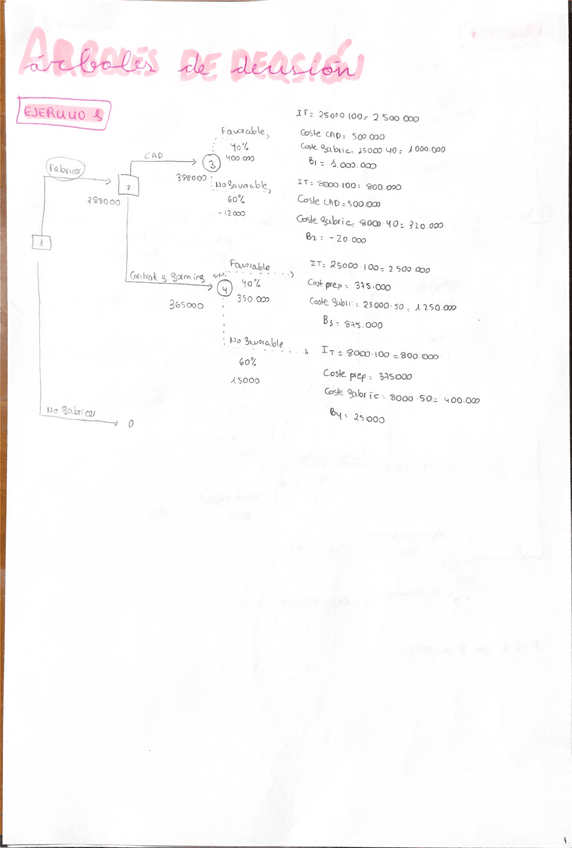 ÁRBOLES DE DECISIÓN
árboles de decisión
EJERCICIO
Fabricar
2
CAD
3
Favorable,
40%
400 000
388000
No favorable,
60%
-12000
1
Contrat y forming
4
Favorable
40%
350.000
365000
No favorable
60%
15000
No fabricar
0
IT = 25000·100 = 2.500.000
Coste CAD = 500.000
Coste fabric. = 25000·40 = 1000.000
B1 = 1.000.000
IT = 8000·100 = 800.000
Coste CAD = 500.000
Coste fabric. = 8000·40 = 320.000
B2 = -20.000
IT = 25000·100 = 2500.000
Cost prep = 375.000
Coste fabric = 25000·50 = 1.250.000
B3 = 875.000
IT = 8000·100 = 800.000
Coste prep = 375000
Coste fabric = 8000·50 = 400.000
B4 = 25000
1